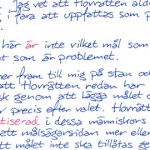 jag vet att Horratten ald
i fara att uppfattas som p
här är inte vilket mål som
t som är problemet.
er fram till mig på stan oc
tt Horratten redan har
sk genom att lägga målet
i precis efter valet. Horratt
tiserad i dessa människors
ett målsägarsidan mer elle
tt målet inte ska tillåtas g